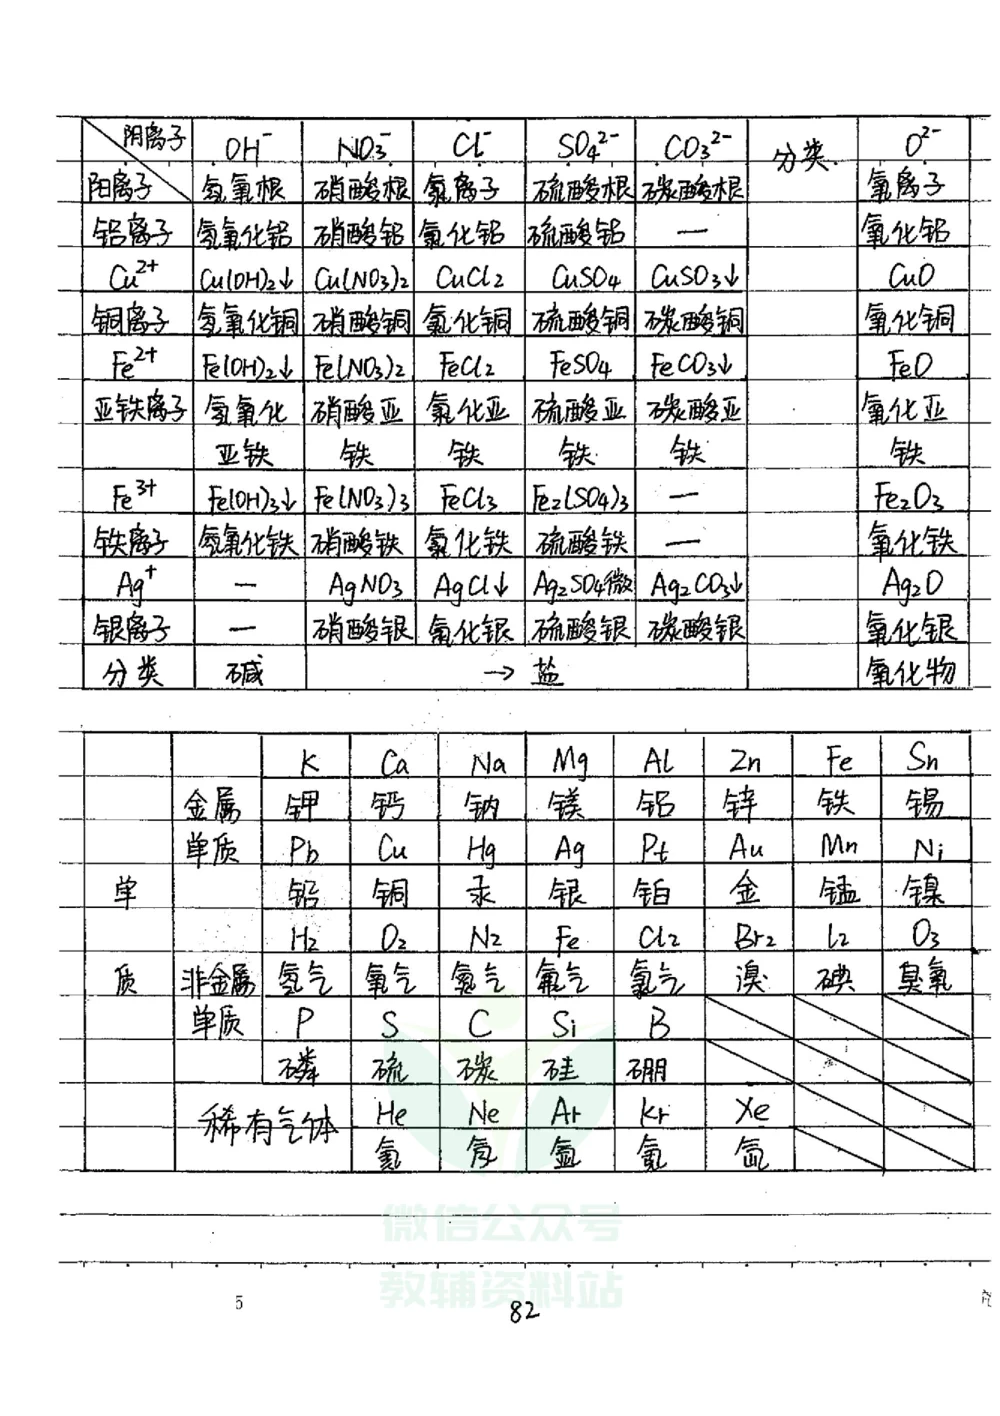 阴离子 OH⁻ NO₃⁻ Cl⁻ SO₄²⁻ CO₃²⁻ 分类 O²⁻
阳离子 氢氧根 硝酸根 氯离子 硫酸根 碳酸根 氧离子
铝离子 氢氧化铝 硝酸铝 氯化铝 硫酸铝 — 氧化铝
Cu²⁺ Cu(OH)₂↓ Cu(NO₃)₂ CuCl₂ CuSO₄ CuSO₃↓ CuO
铜离子 氢氧化铜 硝酸铜 氯化铜 硫酸铜 碳酸铜 氧化铜
Fe²⁺ Fe(OH)₂↓ Fe(NO₃)₂ FeCl₂ FeSO₄ FeCO₃↓ FeO
亚铁离子 氢氧化 硝酸亚 氯化亚 硫酸亚 碳酸亚 氧化亚
亚铁 铁 铁 铁 铁 铁
Fe³⁺ Fe(OH)₃↓ Fe(NO₃)₃ FeCl₃ Fe₂(SO₄)₃ — Fe₂O₃
铁离子 氢氧化铁 硝酸铁 氯化铁 硫酸铁 — 氧化铁
Ag⁺ — AgNO₃ AgCl↓ Ag₂SO₄微 Ag₂CO₃↓ Ag₂O
银离子 — 硝酸银 氯化银 硫酸银 碳酸银 氧化银
分类 碱 → 盐 氧化物
K Ca Na Mg Al Zn Fe Sn
金属 钾 钙 钠 镁 铝 锌 铁 锡
单质 Pb Cu Hg Ag Pt Au Mn Ni
单 铅 铜 汞 银 铂 金 锰 镍
H₂ O₂ N₂ Fe Cl₂ Br₂ I₂ O₃
质 非金属 氢气 氧气 氮气 氟气 氯气 溴 碘 臭氧
单质 P S C Si B
磷 硫 碳 硅 硼
稀有气体 He Ne Ar Kr Xe
氦 氖 氩 氪 氙
微信公众号
教辅资料站
5
82